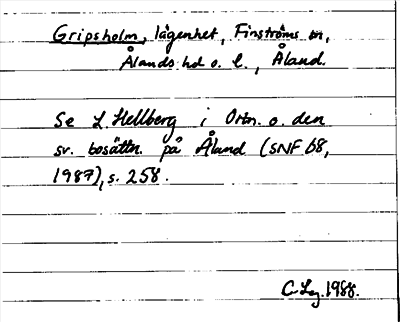 Gripsholm, lägenhet, Finströms sn,
Ålands hd o. l., Åland.
Se L. Hellberg i Ortn. o. den
sv. bosättn. på Åland (SNF 68,
1987), s. 258.
1988.